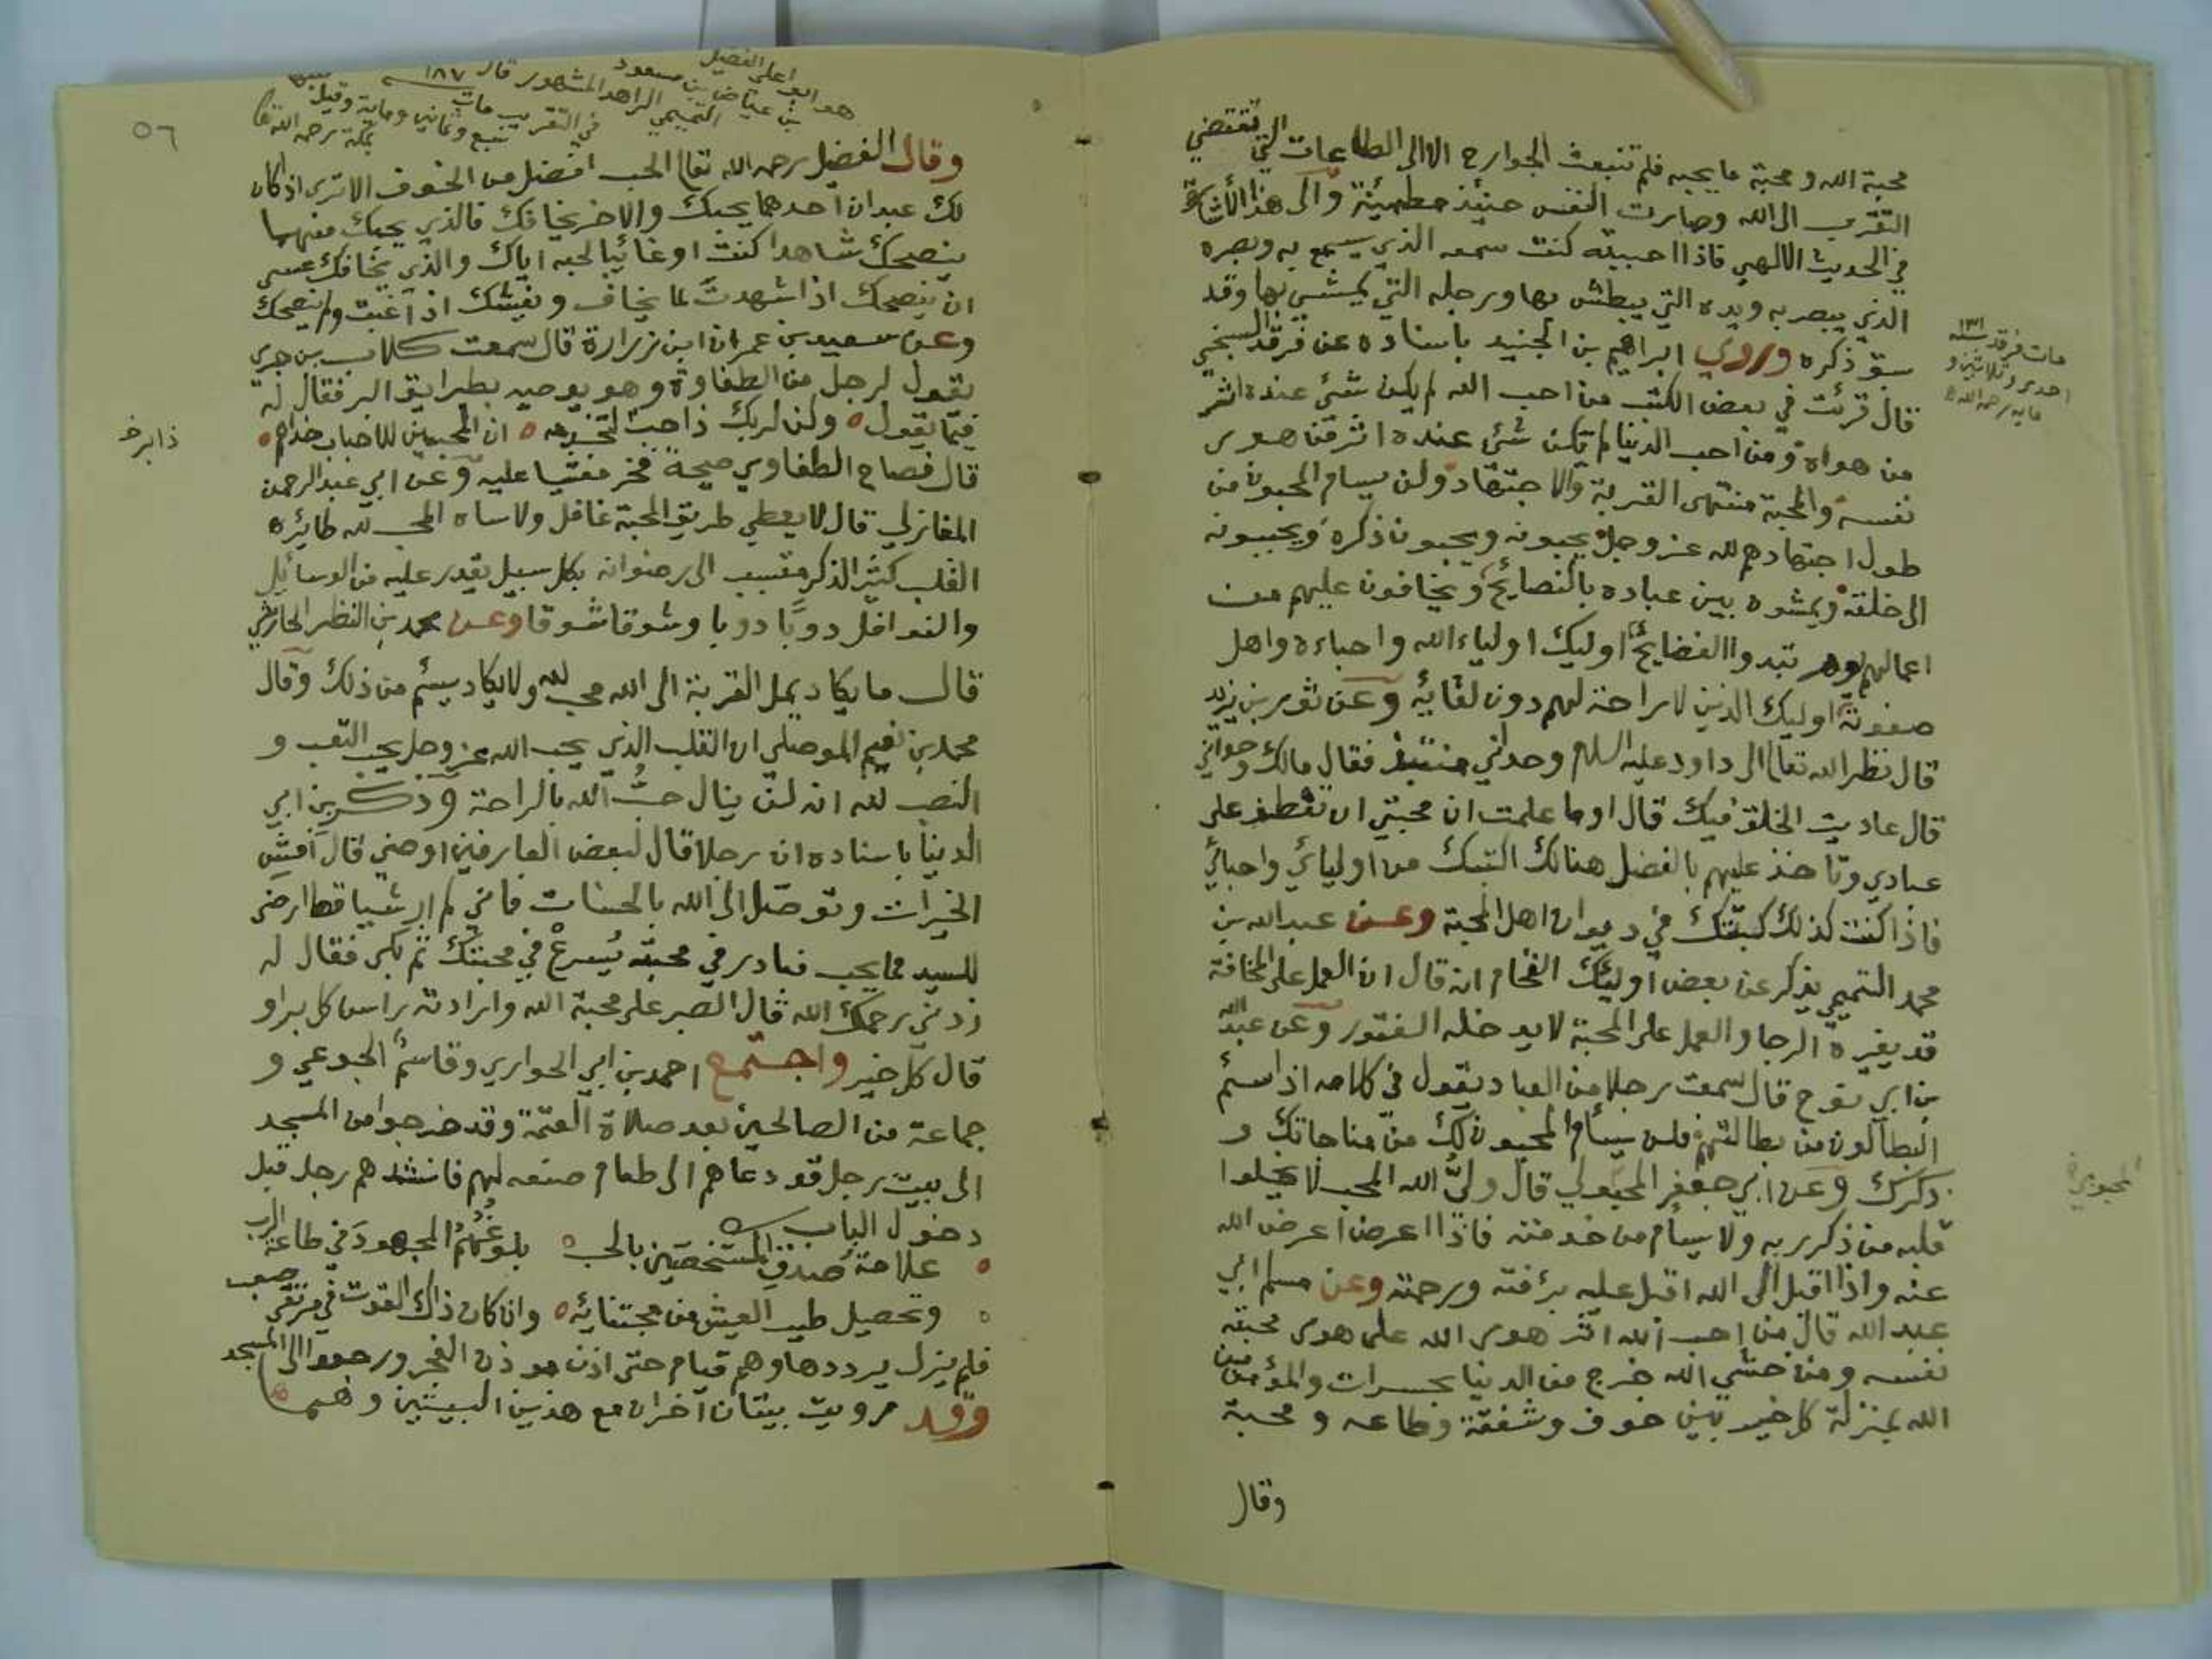 محبة الله ومحبة ما يحبه فلم تنبعث الجوارح الا الى الطاعات التي تقتضي
التقرب الى الله وصارت النفس حينئذ مطمئنة والى هذا الأشارة
في الحديث الالهي فاذا احببته كنت سمعه الذي يسمع به وبصره
الذي يبصر به ويده التي يبطش بها ورجله التي يمشي بها وقد
سبق ذكره وروي ابراهيم بن الجنيد باسناده عن فرقد السبخي
قال قرئت في بعض الكتب من احب الله لم يكن شئ عنده اثر
من هواه ومن احب الدنيا لم تكن شئ عنده اثر من هوى
نفسه والمحبة منتهى القربة والاجتهاد ولن يسام المحبون من
طول اجتهادهم لله عز وجل يحبونه ويحبون ذكره ويحببونه
الى خلقه ويمشوه بين عباده بالنصائح ويخافون عليهم من
اعمالهم تبدوا الفضايح اوليك اولياء الله واحباءه واهل
صفوته اوليك الذين لا راحة لهم دون لقائه وعن ثور بن يزيد
قال نظر الله تعالى الى داود عليه السلم وحداني منتبذ فقال مالك وحداني
قال عاديت الخلق فيك قال اوما علمت ان محبتي ان تعطف على
عبادي وتاخذ عليهم بالفضل هنالك اكتبك من اوليائي واحبائي
فاذا كنت كذلك كتبتك في ديوان اهل المحبة وعن عبد الله بن
محمد التميمي يذكر عن بعض اوليك الفخام انه قال ان العمل على المخافة
قد يغيره الرجا والعمل على المحبة لا يدخله الفتور وعن عبد الله
بن ابي نوح قال سمعت رجلا من العباد يقول في كلامه اذا سئم
البطالون من بطالتهم فلن يسأم المحبون لك من مناجاتك و
ذكرك وعن ابي جعفر المحولي قال ولي الله المحب لا يخلوا
قلبه من ذكر ربه ولا يسأم من خدمته فاذا اعرض اعرض الله
عنه واذا اقبل الى الله اقبل عليه برئفته ورحمته وعن مسلم ابي
عبد الله قال من احب الله اثر هوى الله على هوى محبته
نفسه ومن خشي الله خرج من الدنيا بحسرات والمؤمن من
الله بمنزلة كل خير بين خوف وشفقة وطاعه ومحبة
وقال
مات فرقد سنة ١٣١
احدى وثلاثين و
مايه رحمه الله
٥٦
هو ابو علي الفضيل
بن عياض بن مسعود
التميمي الزاهد المشهور قال ١٨٧
في التقريب مات
سبع وثمانين وماية وقيل
بمكة رحمه الله تعا
وقال الفضيل رحمه الله تعالى الحب افضل من الخوف الا ترى اذ كان
لك عبدان احدهما يحبك والاخر يخافك فالذي يحبك منهما
ينصحك شاهدا كنت او غائبا لحبه اياك والذي يخافك عسى
ان ينصحك اذا شهدت لما يخاف ويغشك اذا غبت ولم ينصحك
وعن سعيد بن عمران ابن زرارة قال سمعت كلاب بن جري
يقول لرجل من الطفاوة وهو يوصيه بطرايق البر فقال له
فيما يقول ه ولن لربك ذا حب لتخدمه ه ان المحبين للاحباب خدام ه
ذا بر خ
قال فصاح الطفاوي صيحة فخر مغشيا عليه وعن ابي عبد الرحمن
المغازلي قال لا يعطي طريق المحبة غافل ولا ساه المحب لله طائره
القلب كثير الذكر متسبب الى رضوانه بكل سبيل يقدر عليه من الوسائل
والنوافل دوبا دوبا وشوقا شوقا وعن محمد بن النظر الحارثي
قال ما يكاد يمل القربة الى الله محب لله ولا يكاد يسئم من ذلك وقال
محمد بن نعيم الموصلي ان القلب الذي يحب الله عز وجل يحب التعب و
النصب لله انه لن ينال حب الله بالراحة وذكر بن ابي
الدنيا باسناده ان رجلا قال لبعض العارفين اوصني قال افش
الخيرات وتوصل الى الله بالحسنات فاني لم ار شيا قط ارضى
للسيد مما يحب فبادر في محبته يسرع في محبتك ثم بكى فقال له
زدني رحمك الله قال الصبر على محبة الله وارادته راس كل بر او
قال كل خير واجتمع احمد بن ابي الحواري وقاسم الجوعي و
جماعة من الصالحين بعد صلاة العتمة وقد خرجوا من المسجد
الى بيت رجل قد دعاهم الى طعام صنعه لهم فانشدهم رجل قبل
دخول الباب
ه علامة صدق المستخصين بالحب ه بلوغهم المجهود في طاعة الرب
ه وتحصيل طيب العيش من مجتنائه ه وان كان ذاك القوت في مرتقى صعب
فلم يزل يرددها وهم قيام حتى اذن موذن الفجر ورجعوا الى المسجد
وقد رويت بيتان آخران مع هذين البيتين وهما